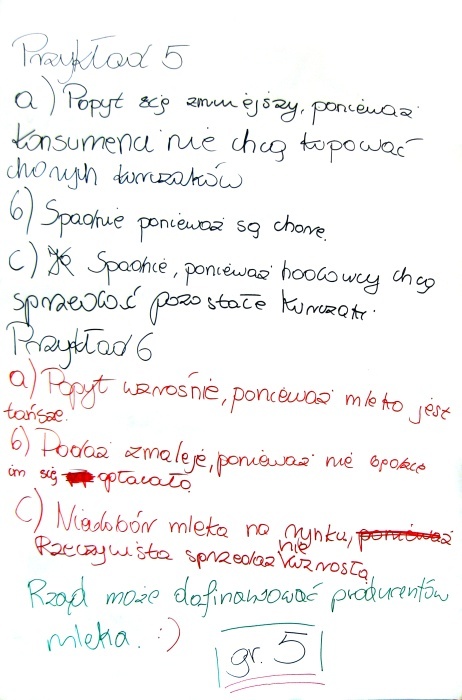 Przykład 5
a) Popyt się zmniejszy, ponieważ
konsumenci nie chcą kupować
chorych kurczaków
b) Spadnie ponieważ są chore.
c) Spadnie, ponieważ hodowcy chcą
sprzedać pozostałe kurczaki.
Przykład 6
a) Popyt wzrośnie, ponieważ mleko jest
tańsze.
b) Podaż zmaleje, ponieważ nie
im się opłacało
c) Niedobór mleka na rynku,
Rzeczywista sprzedaż nie wzrosła
Rząd może dofinansować producentów
mleka. :)
gr. 5